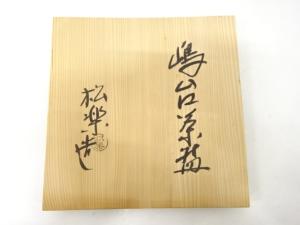 嶋台茶碗
松楽造